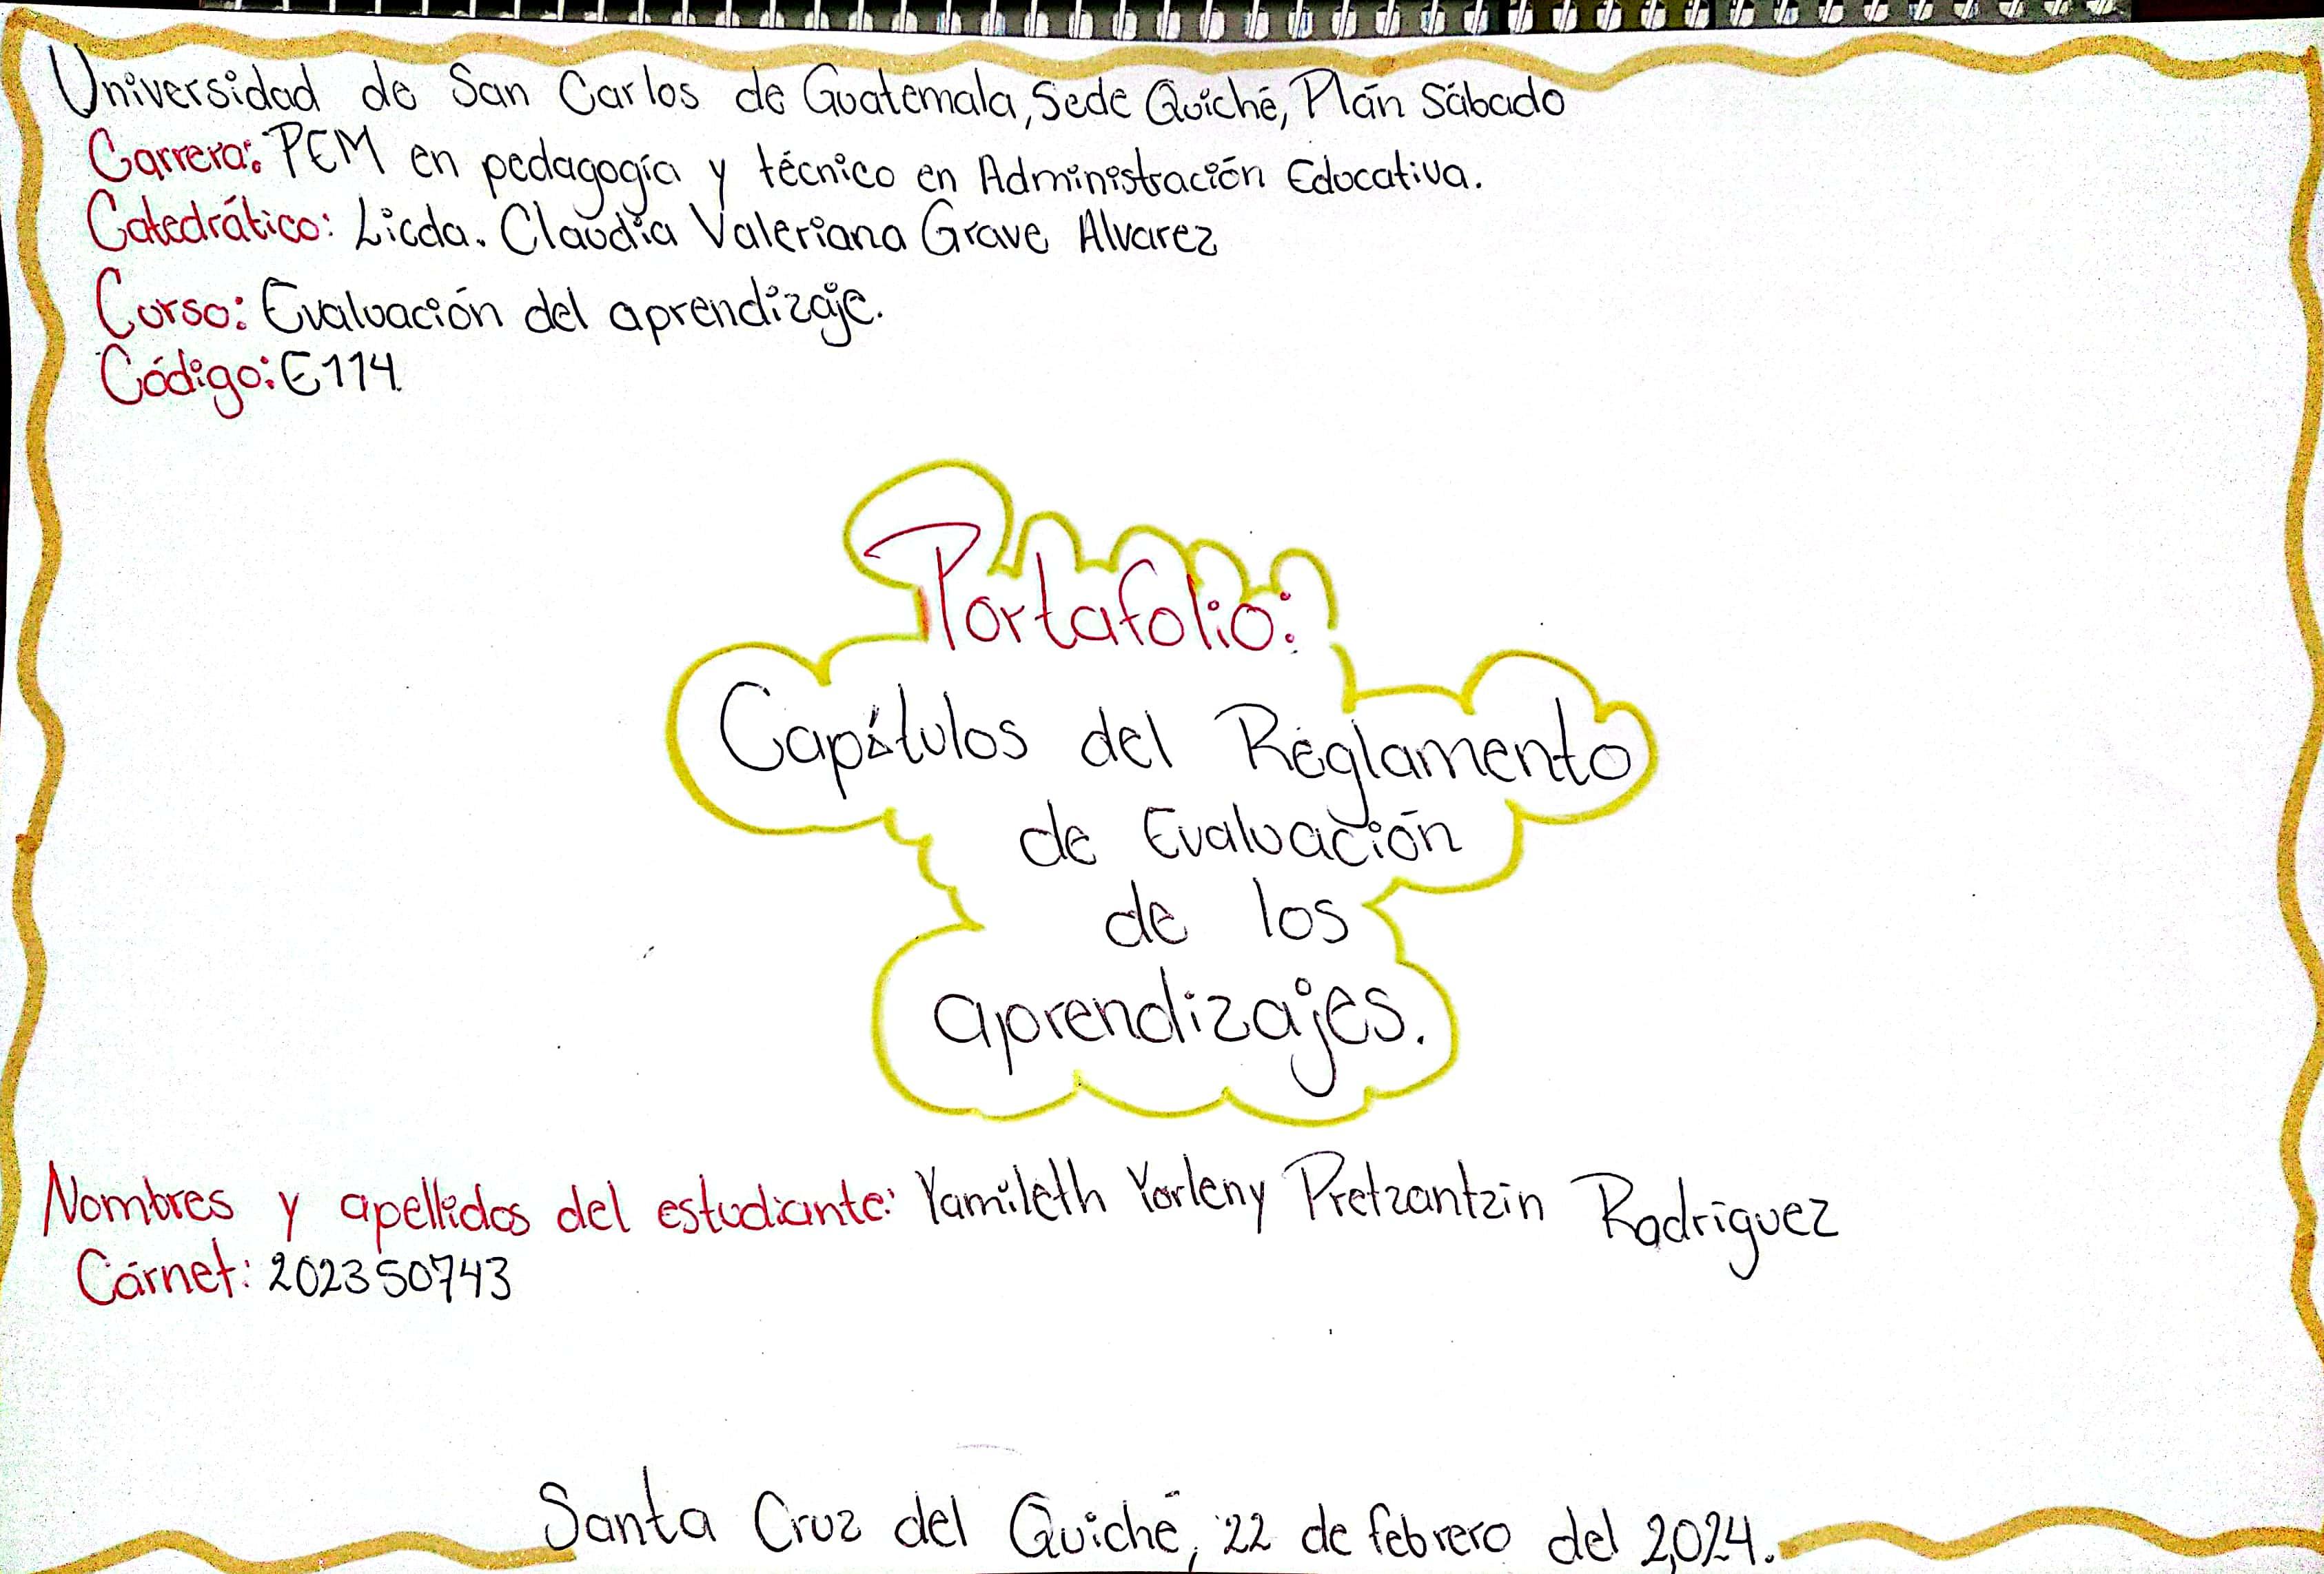 Universidad de San Carlos de Guatemala, Sede Quiché, Plán Sábado
Carrera: PEM en pedagogía y técnico en Administración Educativa.
Catedrático: Licda. Claudia Valeriana Grave Alvarez
Curso: Evaluación del aprendizaje.
Código: E114
Portafolio:
Capítulos del Reglamento
de Evaluación
de los
aprendizajes.
Nombres y apellidos del estudiante: Yamileth Yorleny Pretzantzin Rodriguez
Cárnet: 202350743
Santa Cruz del Quiché, 22 de febrero del 2,024.